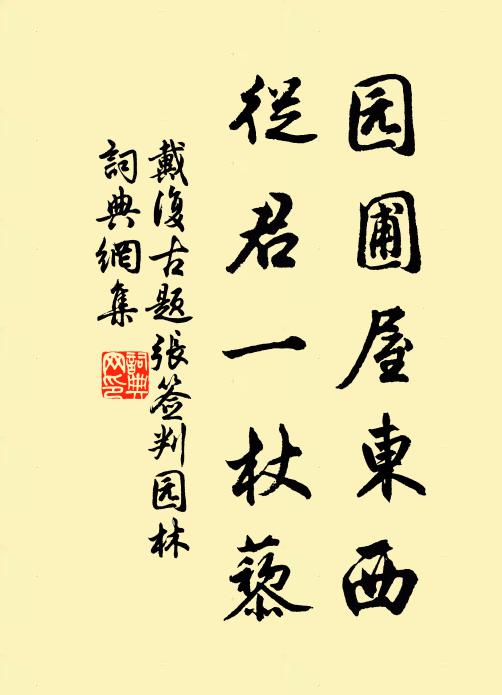 园圃屋東西
從君一杖藜
戴復古題張签判园林
詞典網集
詞典
网印